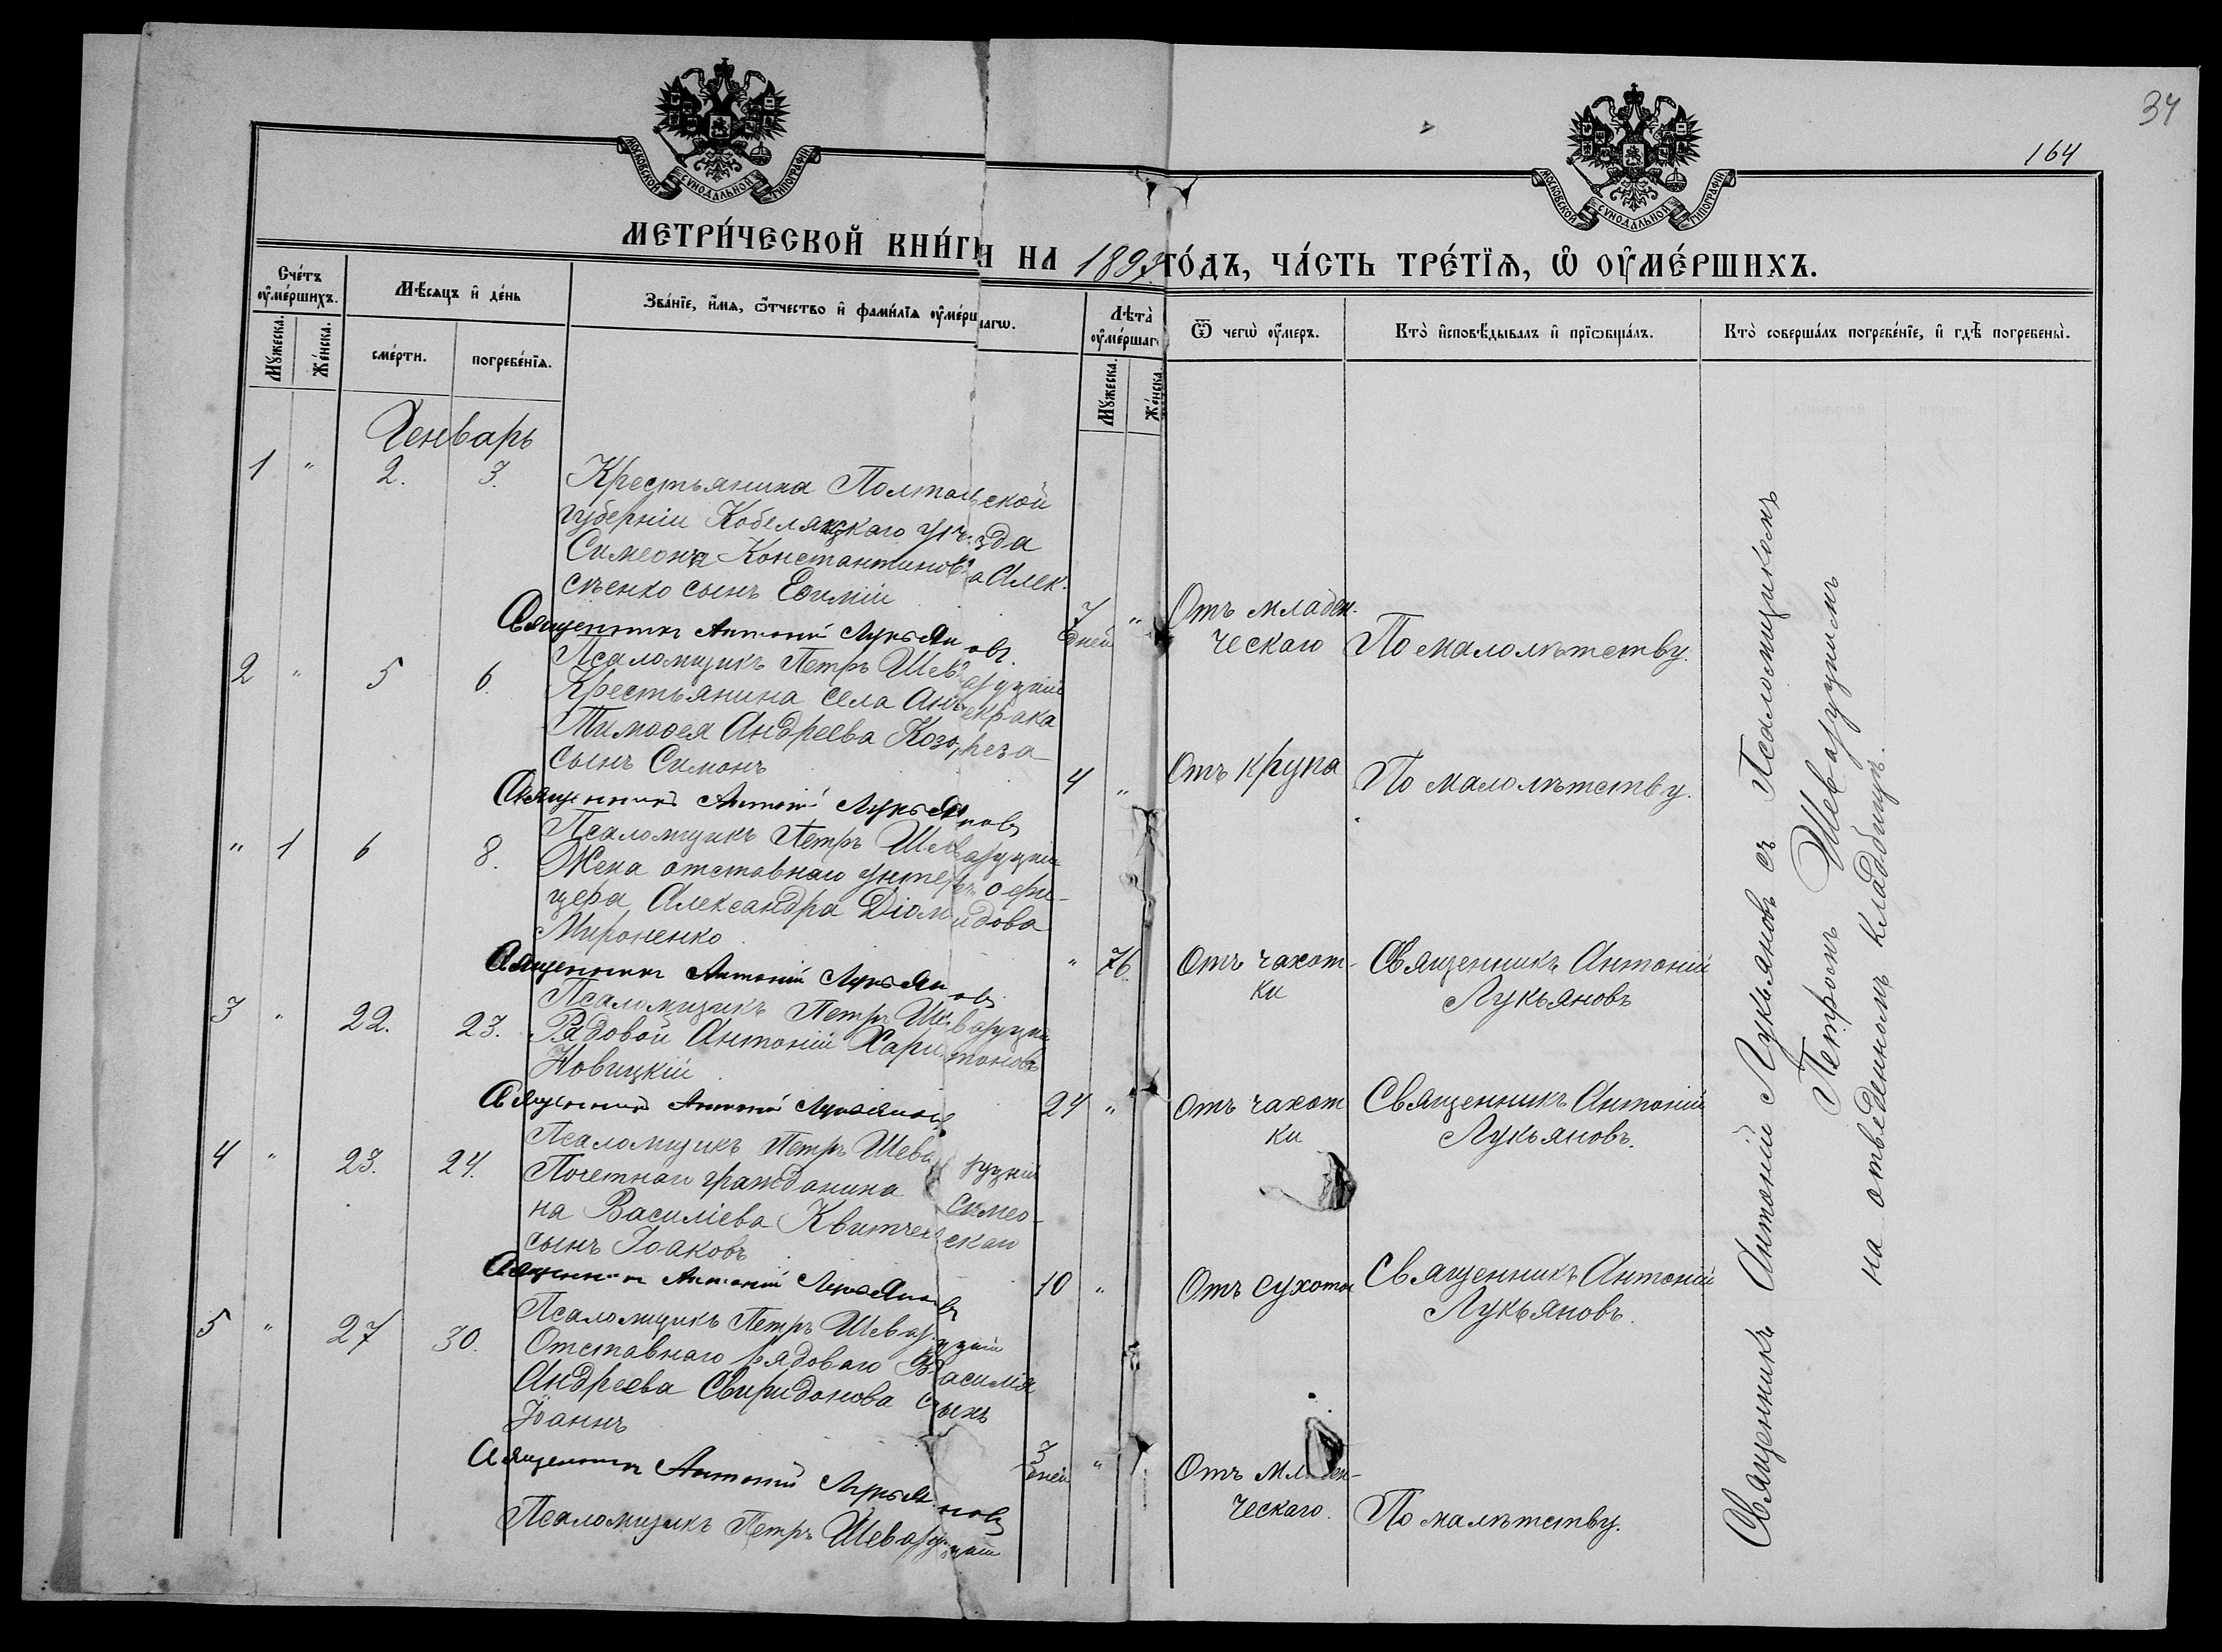 34
164
МОСКОВСКОЙ СѴНОДАЛЬНОЙ ТИПОГРАФІИ
МОСКОВСКОЙ СѴНОДАЛЬНОЙ ТИПОГРАФІИ
МЕТРИ́ЧЕСКОЙ КНИ́ГИ НА 1893 ГО́ДЪ, ЧА́СТЬ ТРЕ́ТІѦ, Ѡ҆ ОУ҆МЕ́РШИХЪ.
Сче́тъ оу҆ме́ршихъ.
Мꙋ́жеска.
Же́нска.
Мѣ́сяцъ и҆ де́нь
сме́рти.
погребе́нїѧ.
Зва́нїе, и҆́мѧ, ѻ҆́тчество и҆ фами́лїѧ оу҆ме́ршагѡ.
Лѣ̀та оу҆ме́ршагѡ
Мꙋ́жеска.
Же́нска.
Ѿ чегѡ̀ оу҆́меръ.
Кто̀ и҆сповѣ́дывалъ и҆ прїѡбща́лъ.
Кто̀ соверша́лъ погребе́нїе, и҆ гдѣ̀ погребены̀.
Генварь
1 " 2. 3. Крестьянина Полтавской
губерніи Кобеляцкаго уѣзда
Симеона Константинова Алек-
сѣенко сынъ Евѳимій 7 дней " Отъ младен- ческаго По малолѣтству.
Священникъ Антоній Лукьяновъ.
Псаломщикъ Петръ Шеваруцкій
2 " 5 6. Крестьянина села
Тимоѳея Андреева Козореза
сынъ Симонъ 4 " Отъ крупа По малолѣтству.
Священникъ Антоній Лукьяновъ
Псаломщикъ Петръ Шеваруцкій
" 1 6 8. Жена отставнаго унтеръ офи-
цера Александра Діомидова
Мироненко " 76 Отъ чахот- ки Священникъ Антоній Лукьяновъ
Священникъ Антоній Лукьяновъ
Псаломщикъ Петръ Шеваруцкій
3 " 22. 23. Рядовой Антоній Харитоновъ
Новицкій 24 " Отъ чахот ки Священникъ Антоній Лукьяновъ.
Священникъ Антоній Лукьяновъ
Псаломщикъ Петръ Шеваруцкій
4 " 23. 24. Почетнаго гражданина Симео-
на Василіева Квитческаго
сынъ Іоаковъ 10 " Отъ сухотки Священникъ Антоній Лукьяновъ.
Священникъ Антоній Лукьяновъ
Псаломщикъ Петръ Шеваруцкій
5 " 27 30. Отставнаго рядоваго Василія
Андреева Свиридонова сынъ
Іоаннъ 3 дней " Отъ младен- ческаго. По малѣтству.
Священникъ Антоній Лукьяновъ
Псаломщикъ Петръ Шеваруцкій
Священникъ Антоній Лукьяновъ съ Псаломщикомъ
Петромъ Шеваруцкимъ
на отведенномъ кладбищѣ.